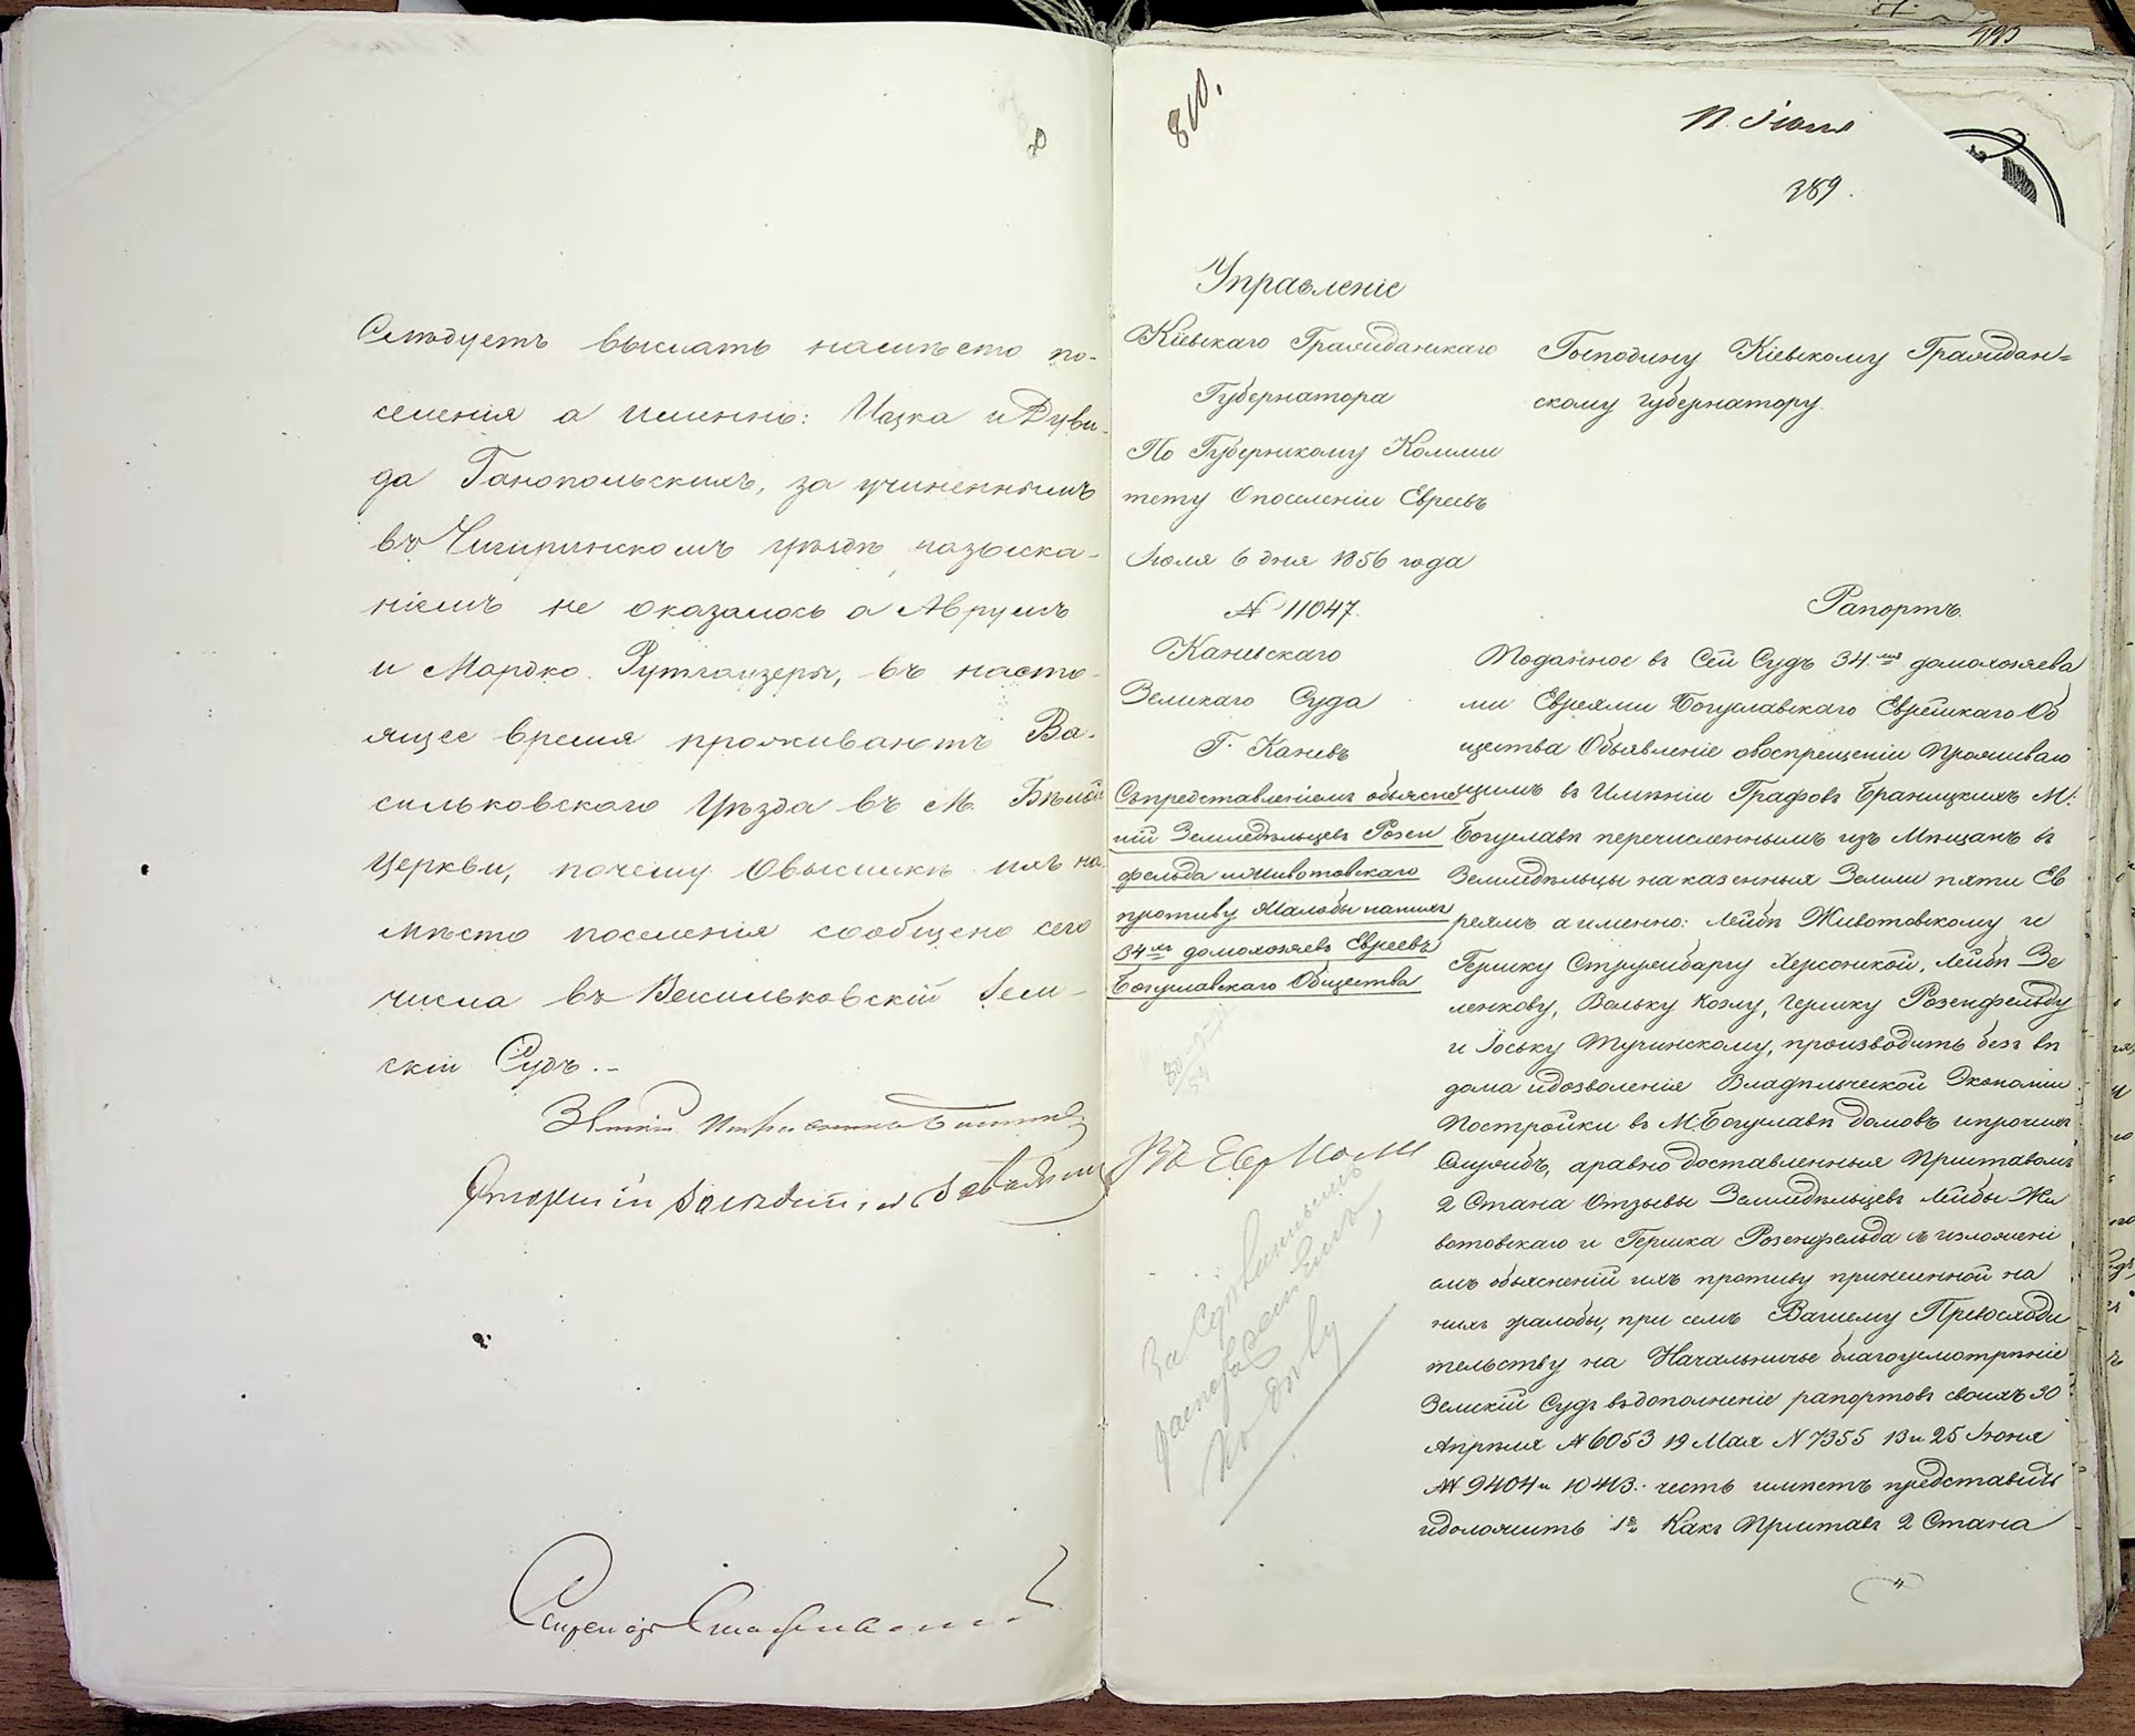 Слѣдуетъ выслать намѣсто по-
селенія а именно: Ицка и Дуви-
да Ганопольскихъ, за учиненнымъ
въ Чигиринскомъ уѣздѣ розыска-
ніемъ не оказалось а Аврумъ
и Мордко Рутгаизеры, въ насто-
ящее время проживаютъ Ва-
сильковскаго Уѣзда въ М. Бѣлой
Церкви, почему Овысылкѣ ихъ на
мѣсто поселенія сообщено сего
числа въ Васильковскій Зем-
скій Судъ.-
Секретарь
810.
11. Іюля
389.
Управленіе
Кіевскаго Гражданскаго
Губернатора
По Губернскому Комми
тету Опоселеніи Евреевъ
Іюля 6 дня 1856 года
№ 11047.
Каневскаго
Земскаго Суда
Г. Каневъ
Съпредставленіемъ объясне
ній Земледѣльцевъ Розен
фельда иЖивотовскаго
противу Жалобы наних
34хъ домохозяевъ Евреевъ
Богуславскаго Общества
Въ Евр Ком
Господину Кіевскому Граждан=
скому Губернатору.
Рапортъ.
Поданное въ Сей Судъ 34.мя домохозяева
ми Евреями Богуславскаго Еврейскаго Об
щества Объявленіе овоспрещеніи Проживаю
щимъ въ Имѣніи Графовъ Браницкихъ М:
Богуславѣ перечисленнымъ изъ Мѣщанъ въ
Земледѣльцы на казенныя Земли пяти Ев
реямъ а именно: Лейбѣ Животовскому и
Гершку Стружбаргу Херсонской, Лейбѣ Зе
ленкову, Вольку Козлу, Гершку Розенфельду
и Іоську Тучинскому, производить безъ вѣ
дома идозволенія Владѣльческой Экономіи
Постройки въ М: Богуславѣ домовъ ипрочихъ
Службъ, аравно доставленныя Приставомъ
2 Стана Отзывы Земледѣльцевъ Лейбы Жи
вотовскаго и Гершка Розенфельда съ изложені
емъ объясненій ихъ противу принесенной на
нихъ жалобы, при семъ Вашему Превосходи
тельству на Начальничье благоусмотрѣніе
Земскій Судъ въдополненіе рапортовъ своихъ 30
Апрѣля № 6053 19 Мая № 7355 13 и 25 Іюня
№ 9404 и 10413. честь имѣетъ представить
идоложить 1е. Какъ Приставъ 2 Стана